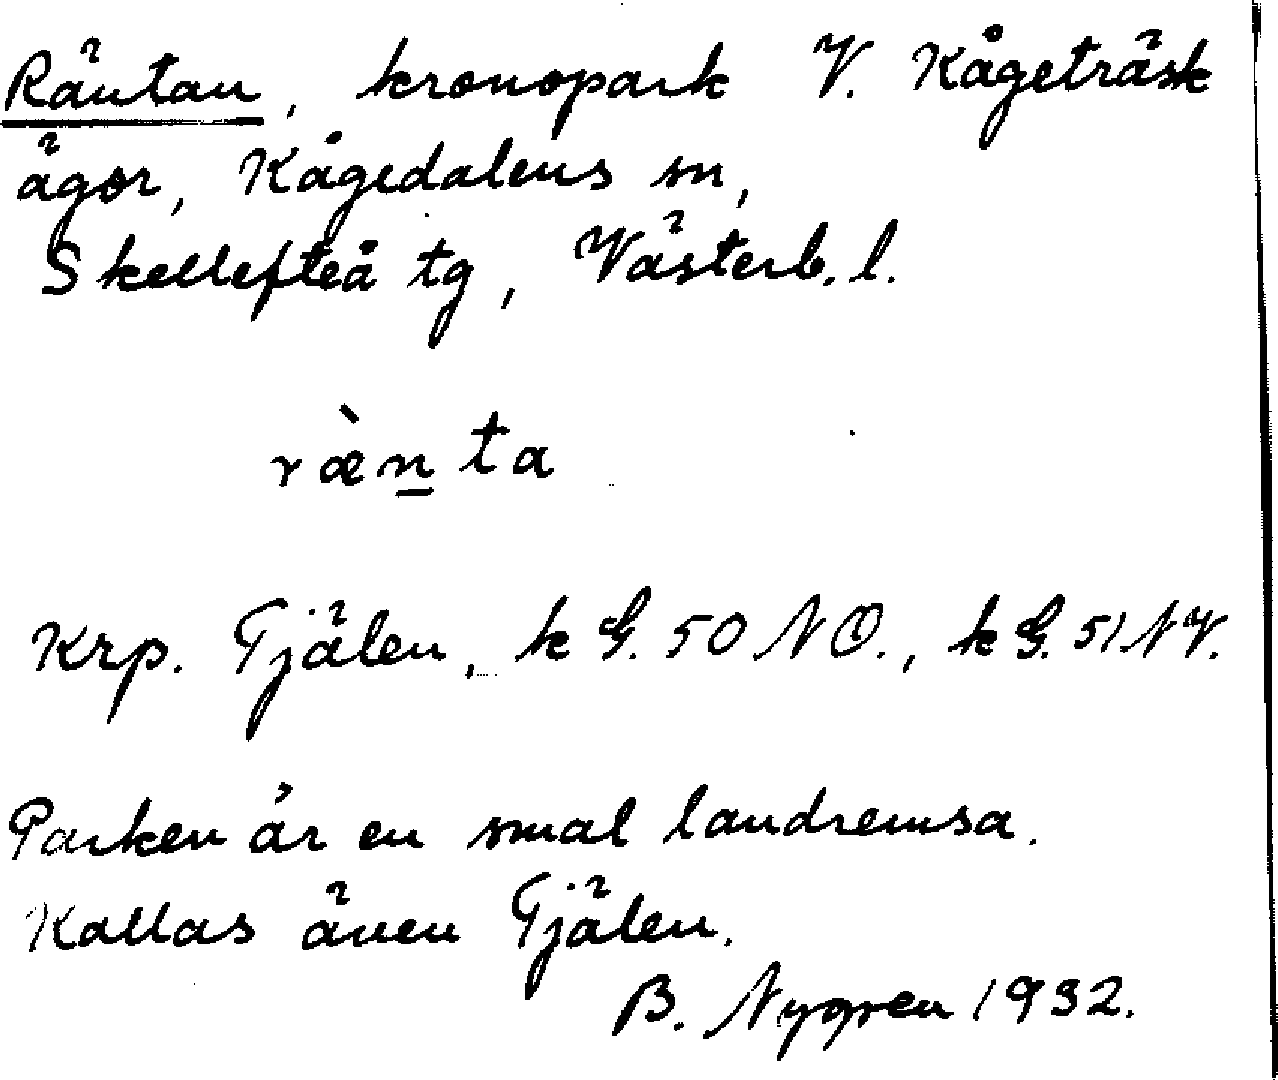 Räntan, kronopark V. Kågeträsk
ägor, Kågedalens sn,
Skellefteå tg, Västerb. l.
ræ̀n̲ta
Krp. Tjälen, k G. 50 NO., k G. 51 NV.
Parken är en smal landremsa.
Kallas även Tjälen.
B. Nygren 1932.